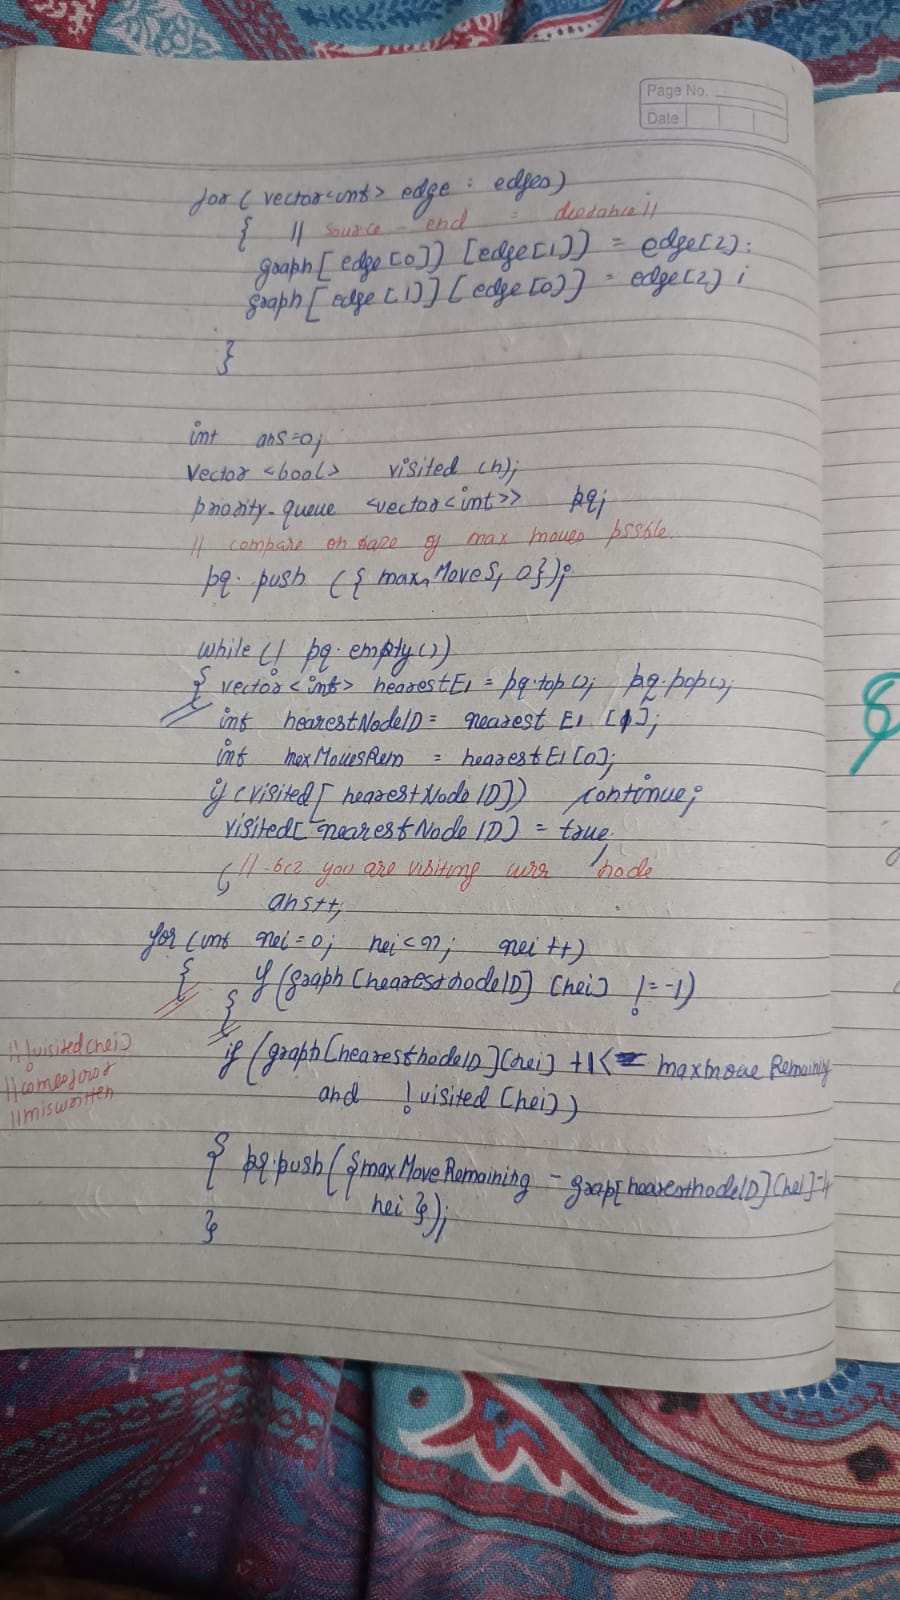 Page No.
Date
for ( vector<int> edge : edges)
{ // source - end = distance //
graph [ edge [0]] [edge[1]] = edge[2];
graph [ edge [1]] [ edge [0]] = edge[2] ;
}
int ans=0;
Vector <bool> visited (n);
priority-queue <vector<int>> pq;
// compare on base of max moves pssble.
pq. push ({ max Moves, 0});
while (! pq. empty())
{ vector<int> nearestEl = pq.top(); pq.pop();
int nearestNodeID = nearest El [1];
int maxMovesRem = nearestEl[0];
if (visited[ nearestNode ID]) continue;
visited[ nearestNode ID] = true;
// bcz you are visiting curr node
ans++;
for (int nei=0; nei<n; nei++)
{ if (graph [nearestnodeID] [nei] != -1)
{
//!visited[nei]
if (graph[nearestnodeID][nei] +1 <= maxmove Remaining
//miswritten
and !visited [nei])
{ pq.push({maxMoveRemaining - grap[nearestnodeID][nei]-1,
nei });
}